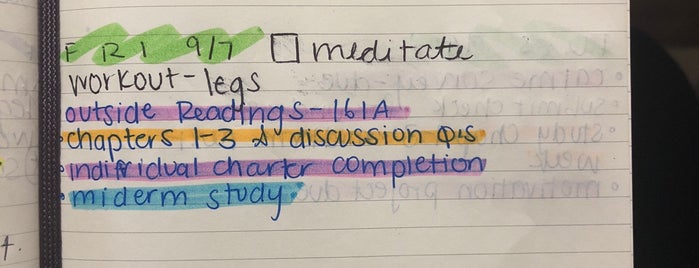 FRI 9/7 □ meditate
workout-legs
outside Readings-161A
•chapters 1-3 & discussion Q's
•individual charter completion
•miderm study•
4.